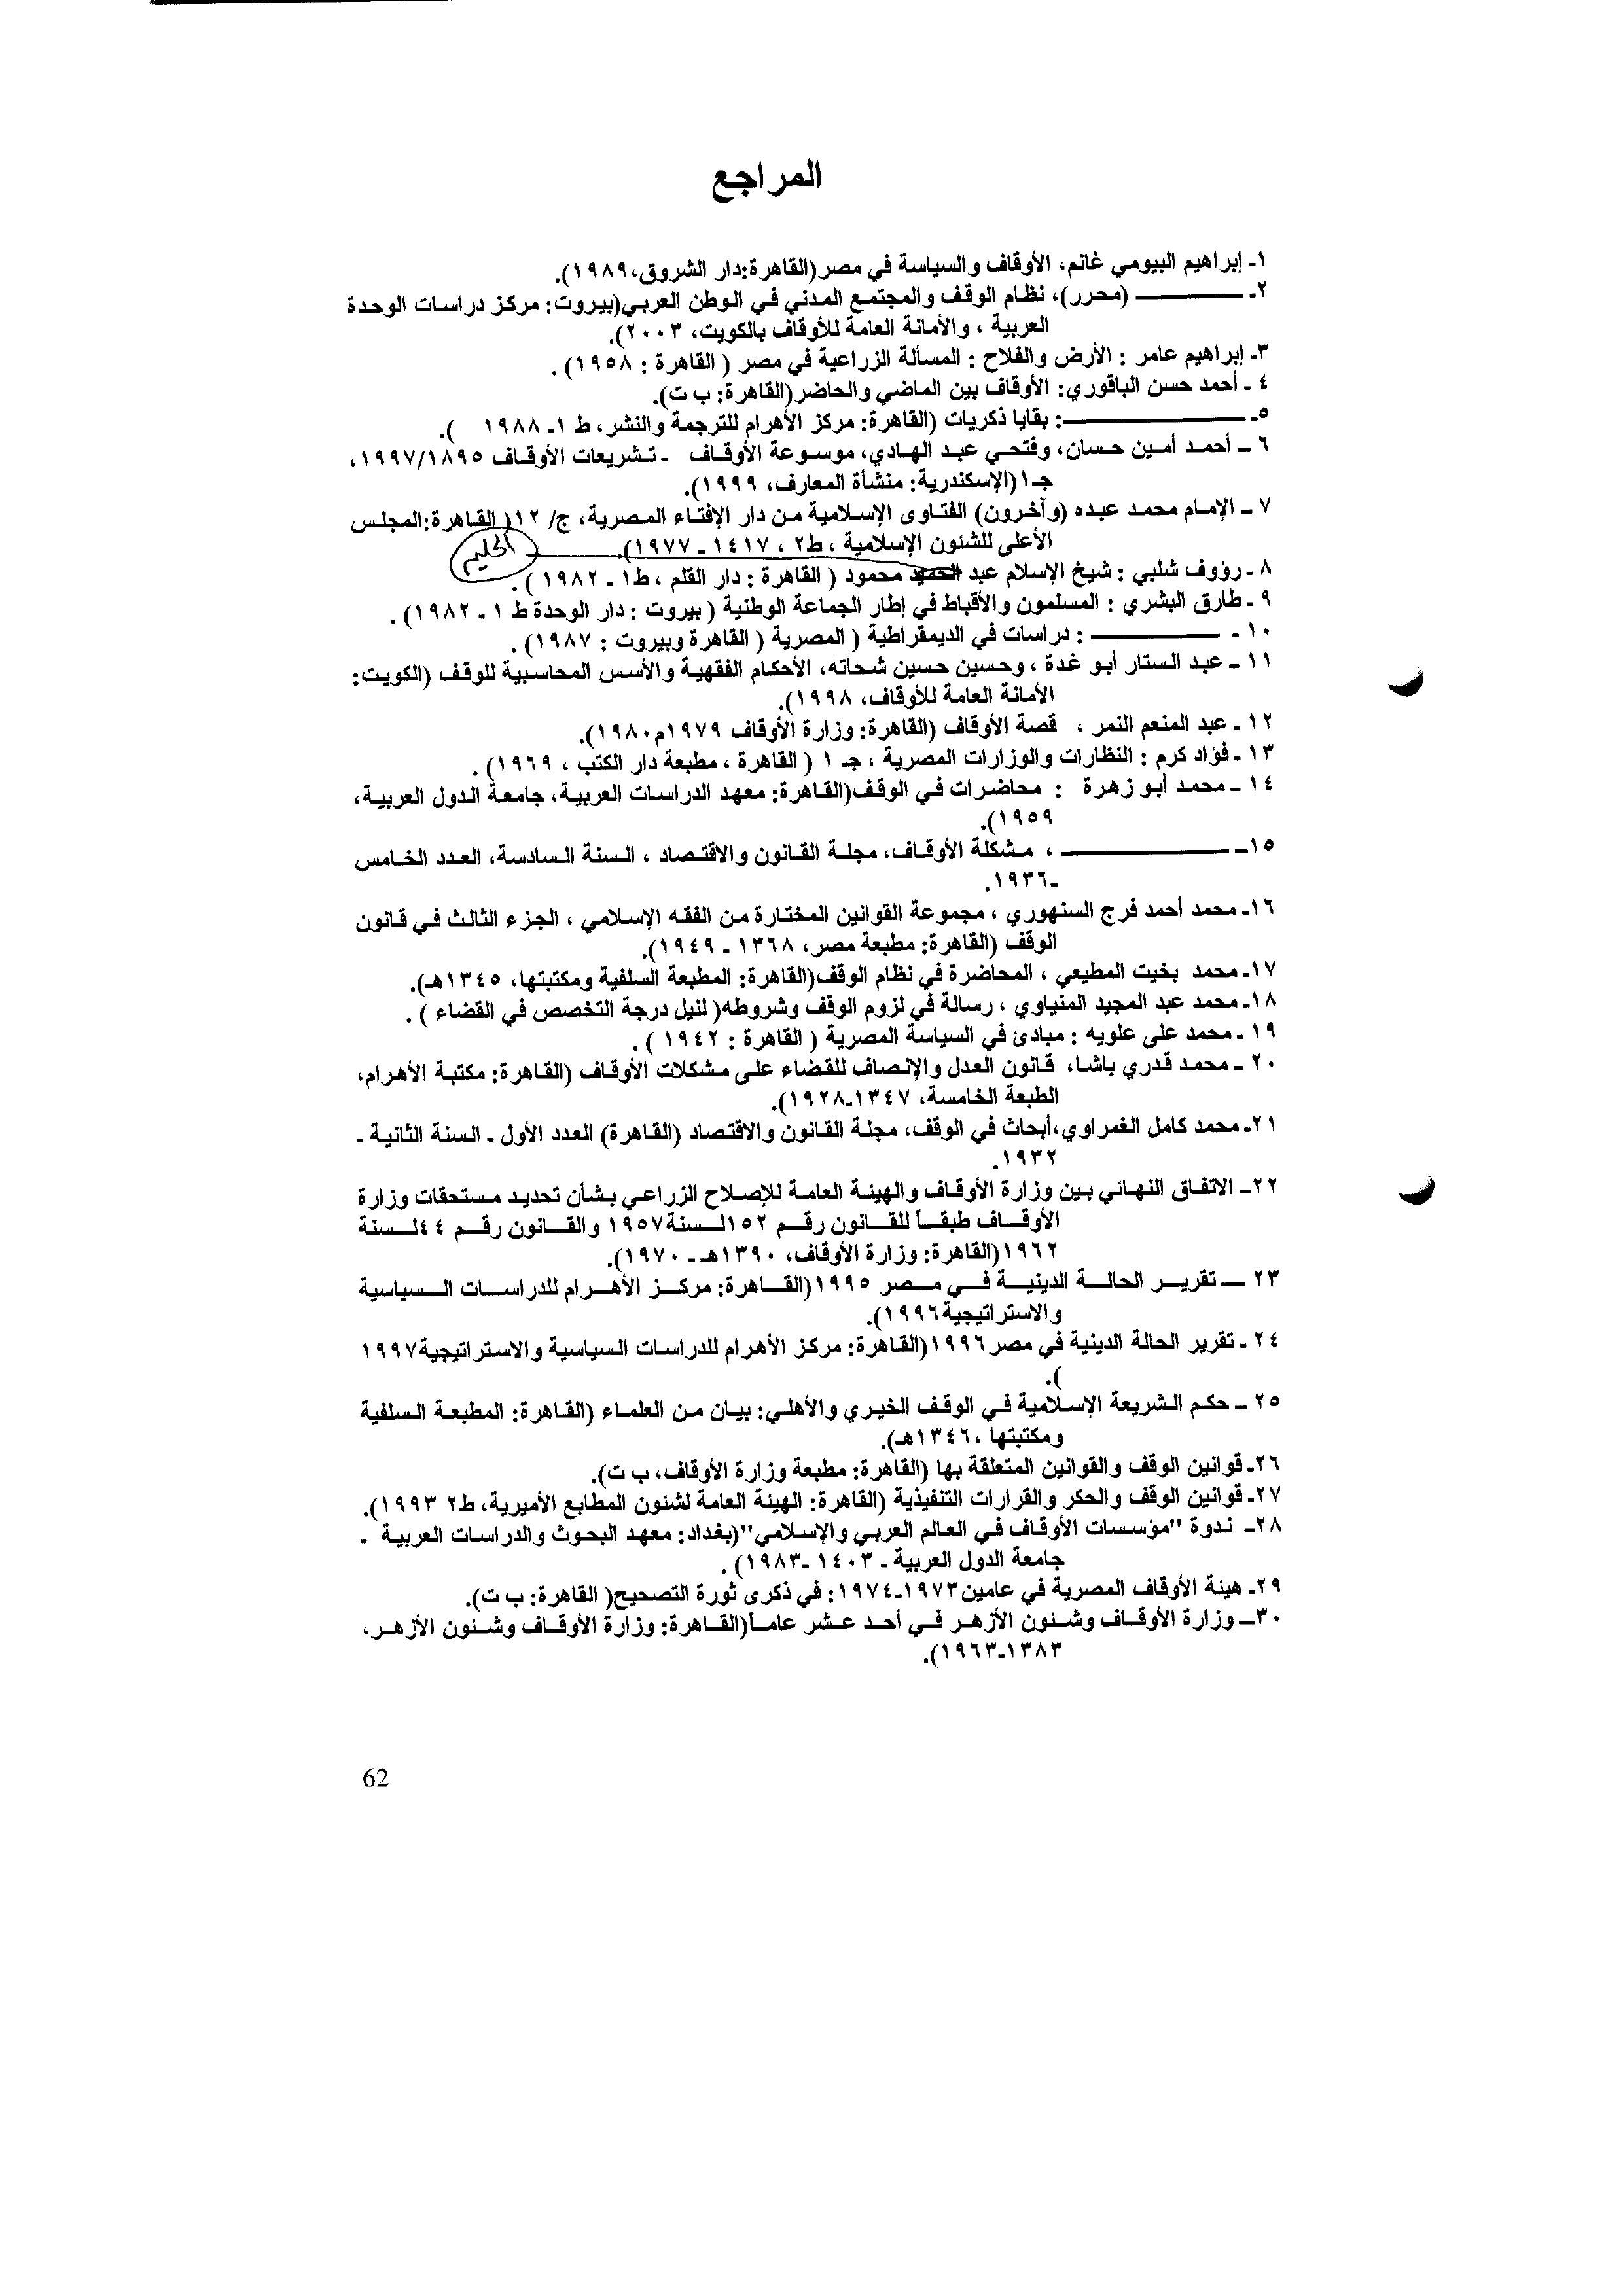 المراجع
١ـ إبراهيم البيومي غانم، الأوقاف والسياسة في مصر(القاهرة:دار الشروق،١٩٨٩).
٢ـ ــــــــــــ (محرر)، نظام الوقف والمجتمع المدني في الوطن العربي(بيروت: مركز دراسات الوحدة
العربية ، والأمانة العامة للأوقاف بالكويت، ٢٠٠٣).
٣ـ إبراهيم عامر : الأرض والفلاح : المسألة الزراعية في مصر ( القاهرة : ١٩٥٨) .
٤ ـ أحمد حسن الباقوري: الأوقاف بين الماضي والحاضر(القاهرة: ب ت).
٥ـ ــــــــــــــــــــ: بقايا ذكريات (القاهرة: مركز الأهرام للترجمة والنشر، ط ١ـ ١٩٨٨ ).
٦ ـ أحمد أمين حسان، وفتحي عبد الهادي، موسوعة الأوقاف ـ تشريعات الأوقاف ١٩٩٧/١٨٩٥،
جـ١(الإسكندرية: منشأة المعارف، ١٩٩٩).
٧ ـ الإمام محمد عبده (وآخرون) الفتاوى الإسلامية من دار الإفتاء المصرية، ج/ ١٢( القاهرة:المجلس
الأعلى للشئون الإسلامية ، ط٢ ، ١٤١٧ ـ ١٩٧٧).
الحليم
٨ ـ رؤوف شلبي : شيخ الإسلام عبد الحميد محمود ( القاهرة : دار القلم ، ط١ ـ ١٩٨٢ ) .
٩ ـ طارق البشري : المسلمون والأقباط في إطار الجماعة الوطنية ( بيروت : دار الوحدة ط ١ ـ ١٩٨٢) .
١٠ ـ ــــــــــــــ : دراسات في الديمقراطية ( المصرية ( القاهرة وبيروت : ١٩٨٧) .
١١ ـ عبد الستار أبو غدة ، وحسين حسين شحاته، الأحكام الفقهية والأسس المحاسبية للوقف (الكويت:
الأمانة العامة للأوقاف، ١٩٩٨).
١٢ ـ عبد المنعم النمر ، قصة الأوقاف (القاهرة: وزارة الأوقاف ١٩٧٩م١٩٨٠).
١٣ ـ فؤاد كرم : النظارات والوزارات المصرية ، جـ ١ ( القاهرة ، مطبعة دار الكتب ، ١٩٦٩) .
١٤ ـ محمد أبو زهرة : محاضرات في الوقف(القاهرة: معهد الدراسات العربية، جامعة الدول العربية،
١٩٥٩).
١٥ـ ــــــــــــــــــ ، مشكلة الأوقاف، مجلة القانون والاقتصاد ، السنة السادسة، العدد الخامس
ـ١٩٣٦.
١٦ـ محمد أحمد فرج السنهوري ، مجموعة القوانين المختارة من الفقه الإسلامي ، الجزء الثالث في قانون
الوقف (القاهرة: مطبعة مصر، ١٣٦٨ ـ ١٩٤٩).
١٧ـ محمد بخيت المطيعي ، المحاضرة في نظام الوقف(القاهرة: المطبعة السلفية ومكتبتها، ١٣٤٥هـ).
١٨ـ محمد عبد المجيد المنياوي ، رسالة في لزوم الوقف وشروطه( لنيل درجة التخصص في القضاء ) .
١٩ ـ محمد على علوبه : مبادئ في السياسة المصرية ( القاهرة : ١٩٤٢ ) .
٢٠ ـ محمد قدري باشا، قانون العدل والإنصاف للقضاء على مشكلات الأوقاف (القاهرة: مكتبة الأهرام،
الطبعة الخامسة، ١٣٤٧ـ١٩٢٨).
٢١ـ محمد كامل الغمراوي،أبحاث في الوقف، مجلة القانون والاقتصاد (القاهرة) العدد الأول ـ السنة الثانية ـ
١٩٣٢.
٢٢ـ الاتفاق النهائي بين وزارة الأوقاف والهيئة العامة للإصلاح الزراعي بشأن تحديد مستحقات وزارة
الأوقاف طبقاً للقانون رقم ١٥٢لسنة١٩٥٧ والقانون رقم ٤٤لسنة
١٩٦٢(القاهرة: وزارة الأوقاف، ١٣٩٠هـ ـ ١٩٧٠).
٢٣ ـ تقرير الحالة الدينية في مصر ١٩٩٥(القاهرة: مركز الأهرام للدراسات السياسية
والاستراتيجية١٩٩٦).
٢٤ ـ تقرير الحالة الدينية في مصر١٩٩٦(القاهرة: مركز الأهرام للدراسات السياسية والاستراتيجية١٩٩٧
).
٢٥ ـ حكم الشريعة الإسلامية في الوقف الخيري والأهلي: بيان من العلماء (القاهرة: المطبعة السلفية
ومكتبتها ،١٣٤٦هـ).
٢٦ـ قوانين الوقف والقوانين المتعلقة بها (القاهرة: مطبعة وزارة الأوقاف، ب ت).
٢٧ـ قوانين الوقف والحكر والقرارات التنفيذية (القاهرة: الهيئة العامة لشئون المطابع الأميرية، ط٢ ١٩٩٣).
٢٨ـ ندوة "مؤسسات الأوقاف في العالم العربي والإسلامي"(بغداد: معهد البحوث والدراسات العربية ـ
جامعة الدول العربية ـ ١٤٠٣ ـ١٩٨٣) .
٢٩ـ هيئة الأوقاف المصرية في عامين١٩٧٣ـ١٩٧٤: في ذكرى ثورة التصحيح( القاهرة: ب ت).
٣٠ـ وزارة الأوقاف وشئون الأزهر في أحد عشر عاماً(القاهرة: وزارة الأوقاف وشئون الأزهر،
١٣٨٣ـ١٩٦٣).
62